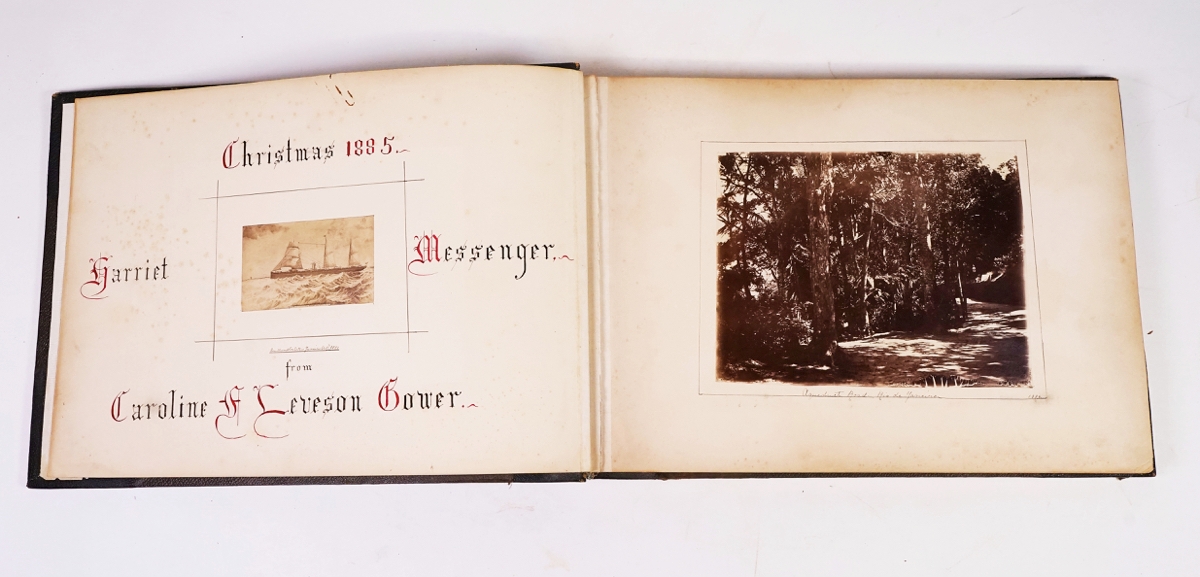 Christmas 1885.
Harriet Messenger.
from
Caroline F Leveson Gower.
Road